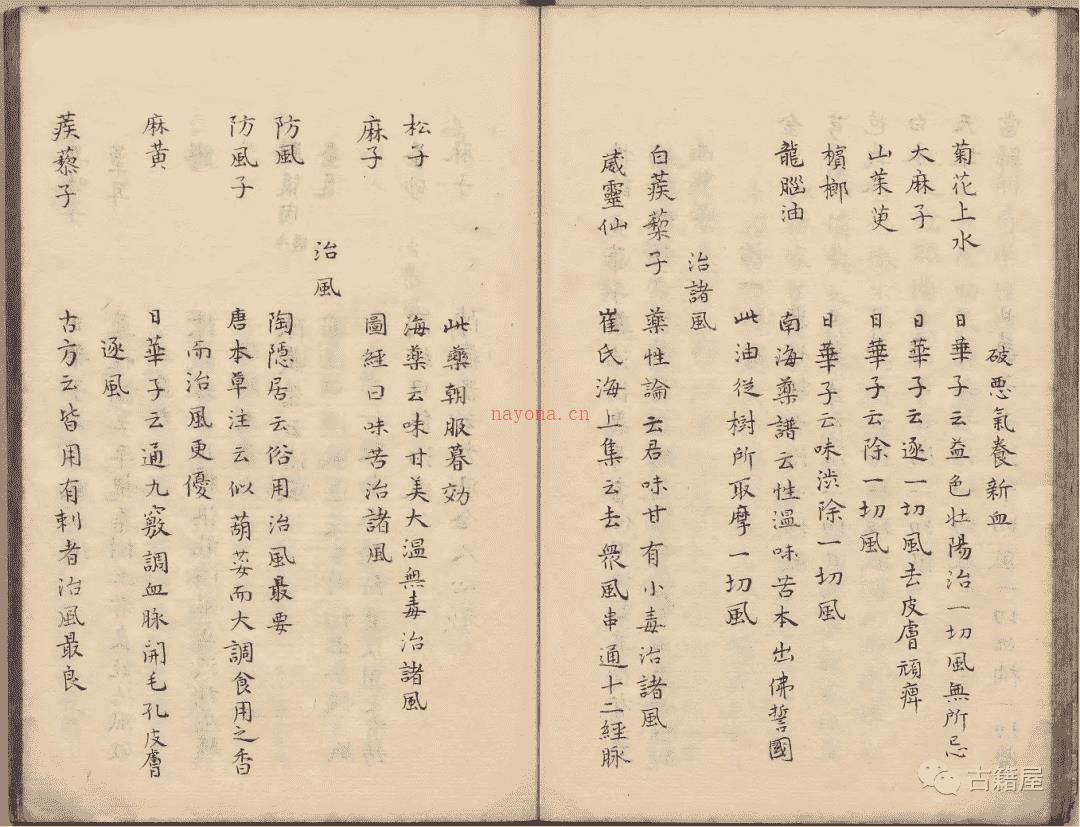 破悪氣養新血
菊花上水 日華子云益色壮陽治一切風無所忌
大麻子 日華子云逐一切風去皮膚頑痺
山茱萸 日華子云除一切風
檳榔 日華子云味渋除一切風
龍腦油 南海藥譜云性溫味苦本出佛誓國
此油従樹所取摩一切風
治諸風
白蒺䔧子 藥性論云君味甘有小毒治諸風
葳靈仙 崔氏海上集云去衆風串通十二経脉
此藥朝服暮効
松子 海藥云味甘美大溫無毒治諸風
麻子 圖經曰味苦治諸風
治風
防風 陶隠居云俗用治風最要
防風子 唐本草注云似葫荽而大調食用之香
而治風更優
麻黄 日華子云通九竅調血脉開毛孔皮膚
逐風
蒺藜子 古方云皆用有刺者治風最良
nayona.cn
古籍屋